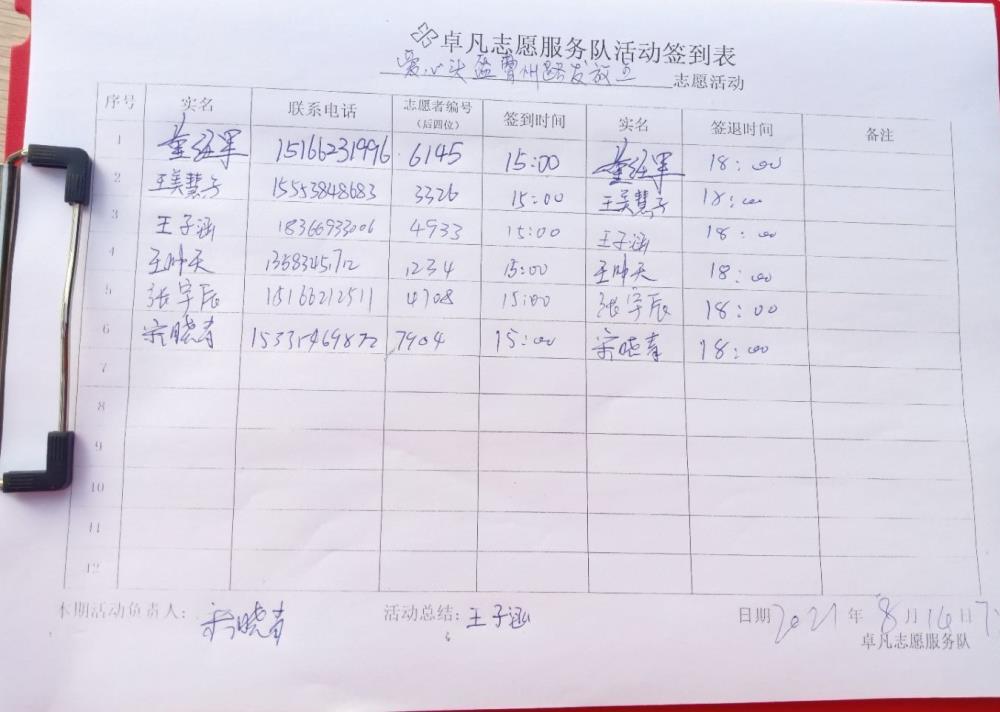 卓凡志愿服务队活动签到表
爱心头盔曹州路发放点 志愿活动
序号 实名 联系电话 志愿者编号(后四位) 签到时间 实名 签退时间 备注
1 15166231996 6145 15:00 18:00
2 王美慧子 15553848683 3326 15:00 王美慧子 18:00
3 王子涵 18366933006 4933 15:00 王子涵 18:00
4 王帅天 1234 15:00 王帅天 18:00
5 张宇辰 15166212511 4708 15:00 张宇辰 18:00
6 宋晓青 15331469872 7904 15:00 宋晓青 18:00
7
8
9
10
11
12
本期活动负责人: 宋晓青 活动总结: 王子涵 日期 2021 年 8 月 14 日
卓凡志愿服务队